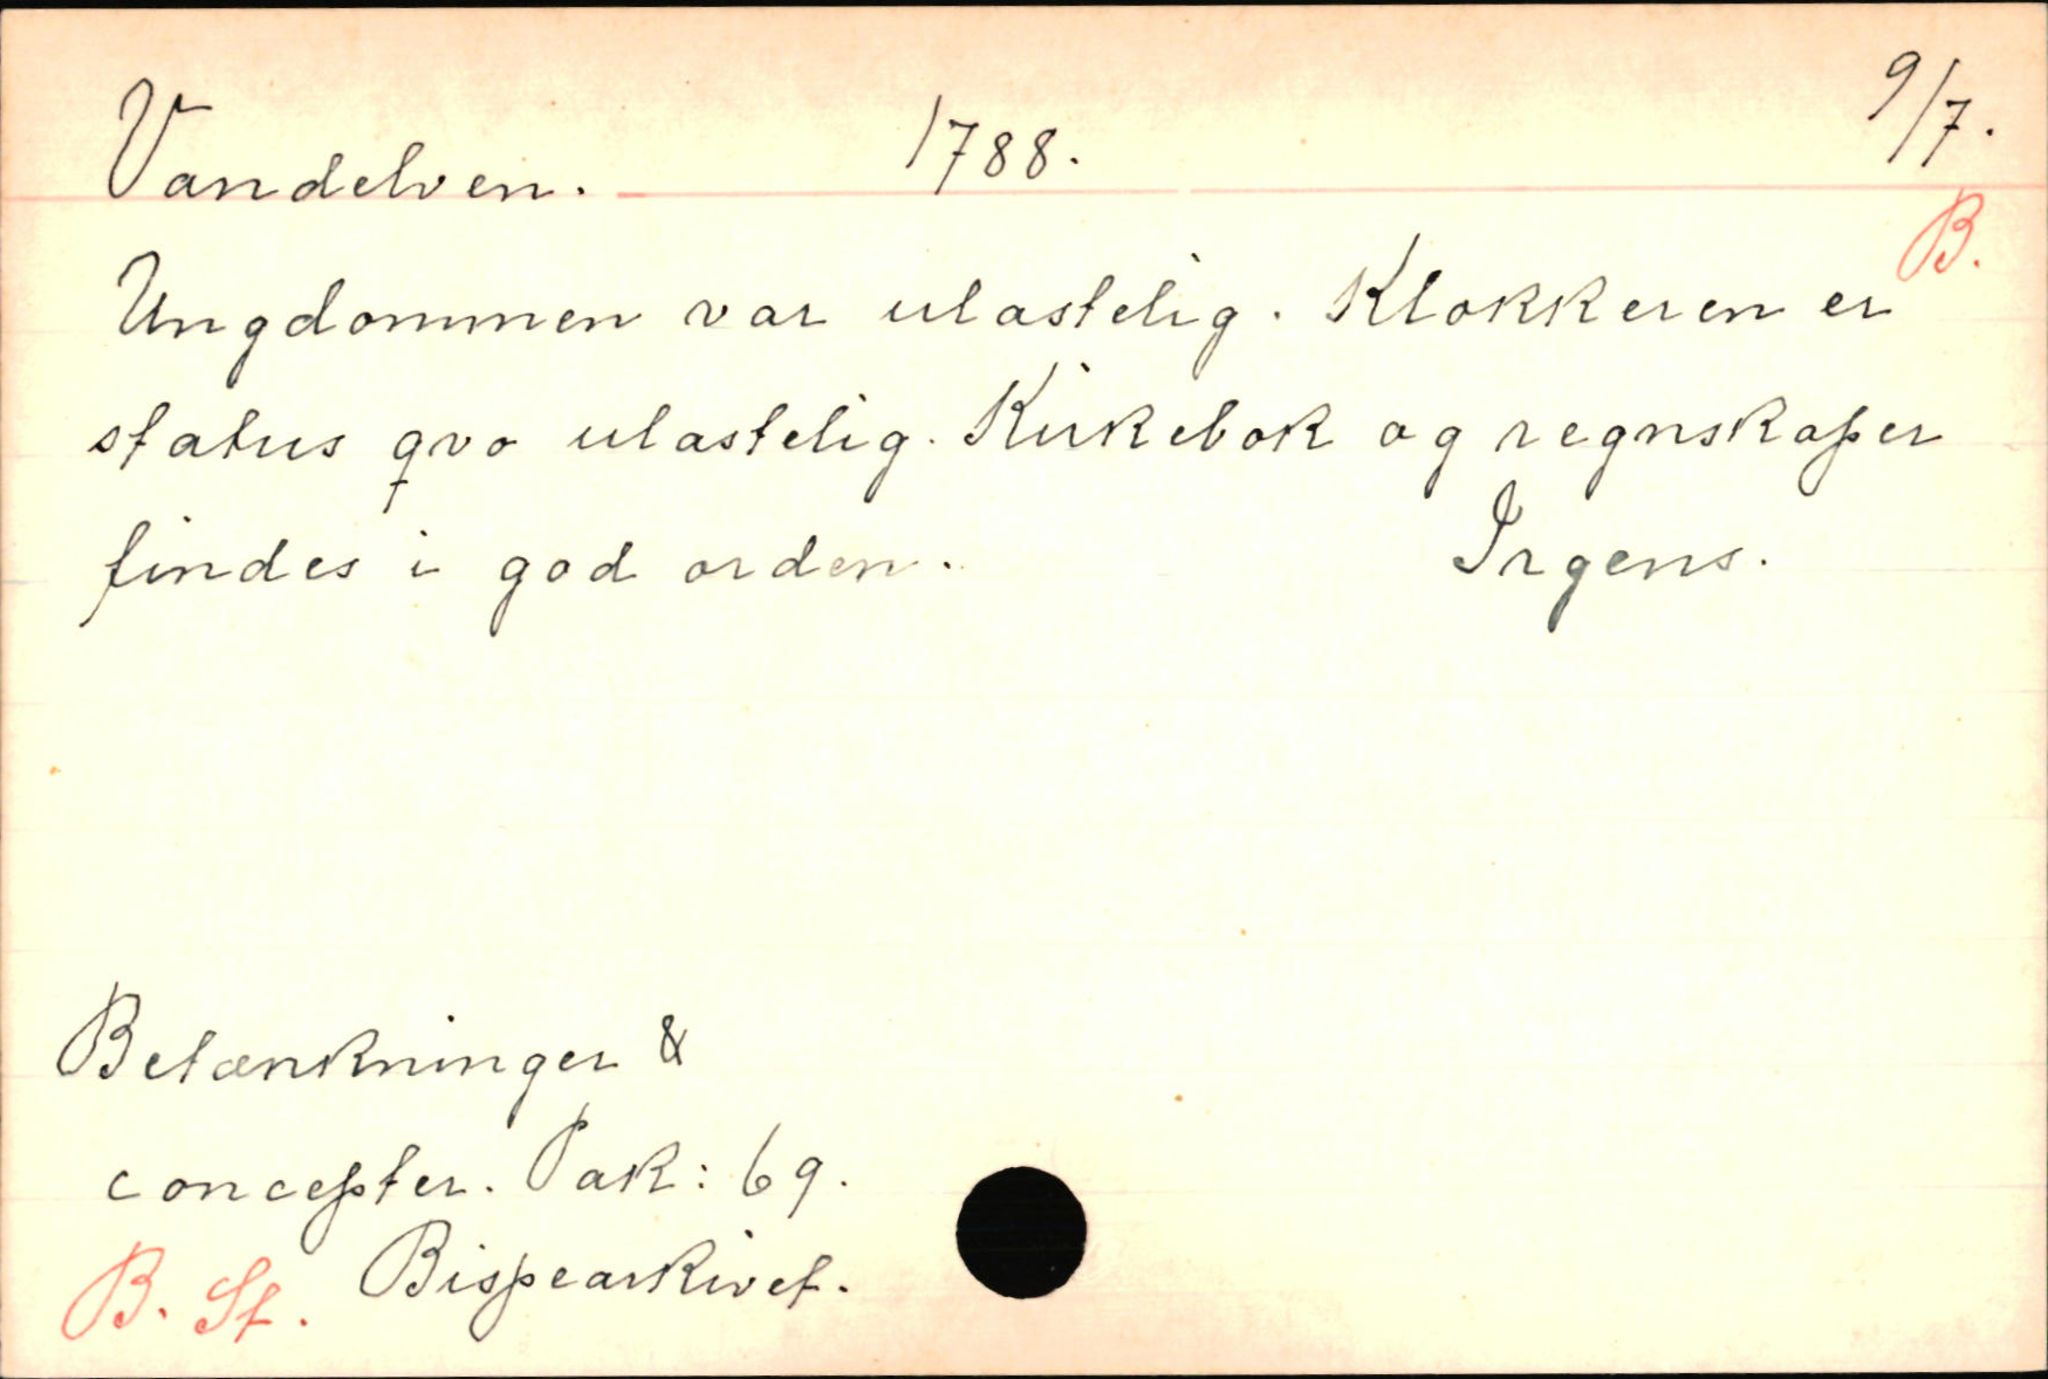 Vandelven. 1788. 9/7.
B.
Ungdommen var ulastelig. Klokkeren er
status qvo ulastelig. Kirkebok og regnskaper
findes i god orden. Irgens.
Betænkninger &
concepter. Pak: 69.
B. St. Bispearkivet.